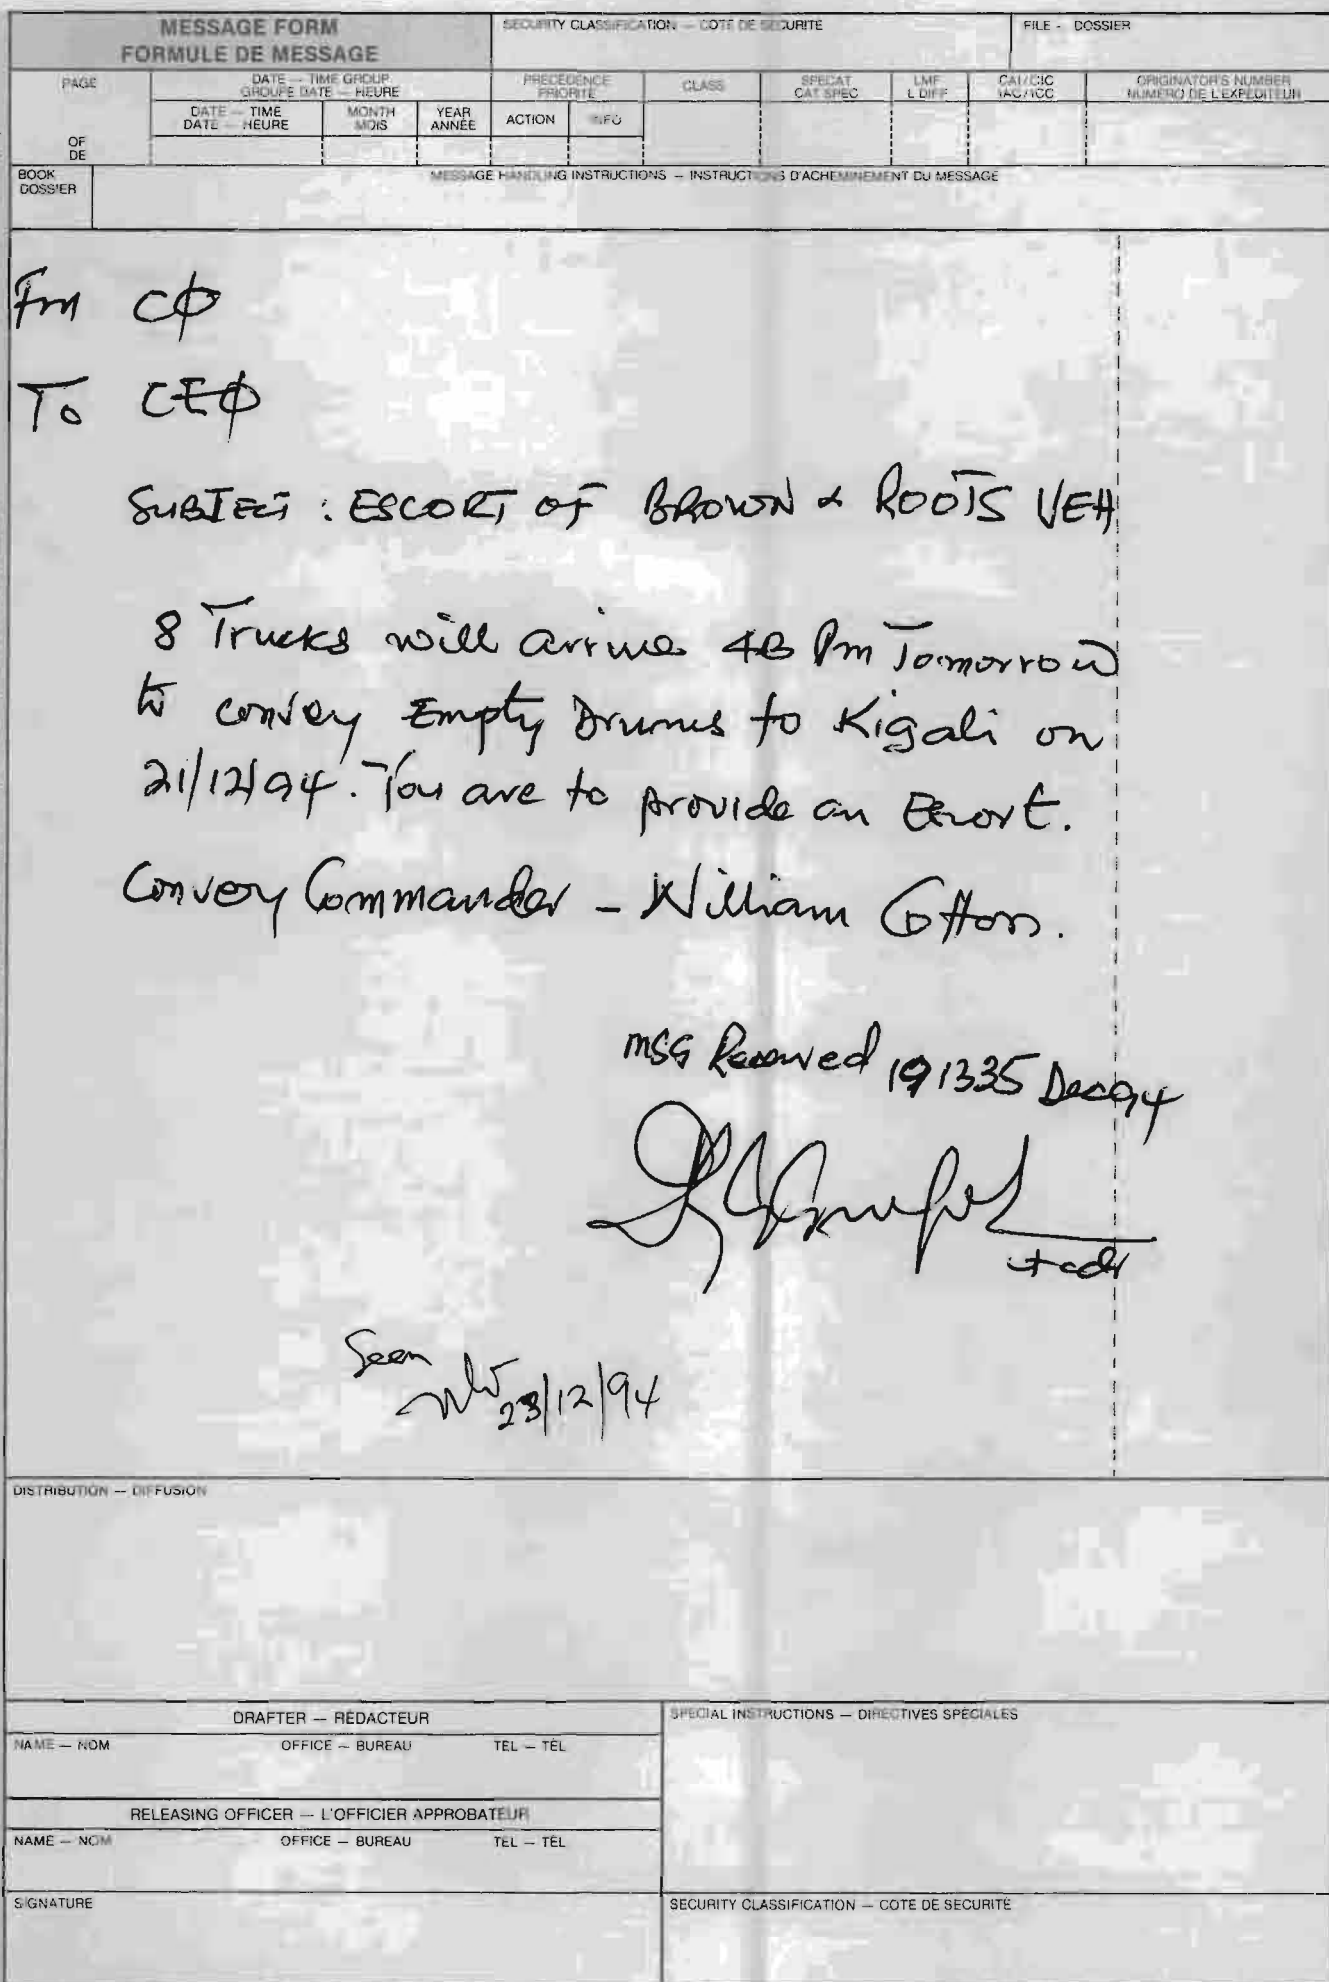 MESSAGE FORM
FORMULE DE MESSAGE
SECURITY CLASSIFICATION — COTE DE SECURITE
FILE - DOSSIER
PAGE
OF
DE
DATE — TIME GROUP
GROUPE DATE — HEURE
DATE — TIME
DATE — HEURE
MONTH
MOIS
YEAR
ANNÉE
PRECEDENCE
PRIORITE
ACTION
INFO
CLASS
SPECAT
CAT SPEC
LMF
L DIFF
CAI/CIC
IAC/ICC
ORIGINATOR'S NUMBER
NUMERO DE L'EXPEDITEUR
BOOK
DOSSIER
MESSAGE HANDLING INSTRUCTIONS — INSTRUCTIONS D'ACHEMINEMENT DU MESSAGE
Fm CØ
To CEØ
SUBJECT : ESCORT OF BROWN & ROOTS VEH
8 Trucks will arrive 4B Pm Tomorrow
to convey Empty Drums to Kigali on
21/12/94. You are to provide an Escort.
Convoy Commander - William Cotton.
MSG Received 191335 Dec 94
Seen
23/12/94
DISTRIBUTION — DIFFUSION
DRAFTER — RÉDACTEUR
NAME — NOM OFFICE — BUREAU TEL — TÉL
RELEASING OFFICER — L'OFFICIER APPROBATEUR
NAME — NOM OFFICE — BUREAU TEL — TÉL
SIGNATURE
SPECIAL INSTRUCTIONS — DIRECTIVES SPÉCIALES
SECURITY CLASSIFICATION — COTE DE SECURITÉ